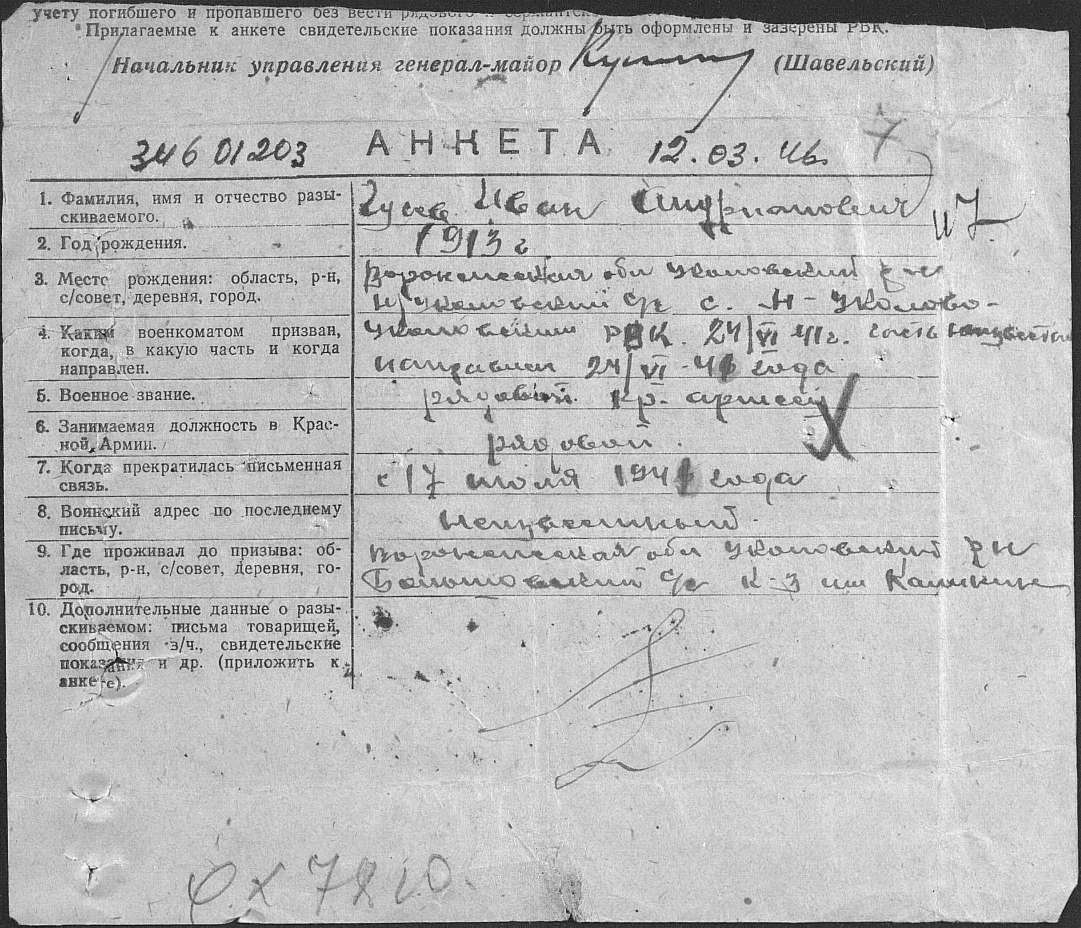 учету погибшего и пропавшего без вести рядового и сержантск
Прилагаемые к анкете свидетельские показания должны быть оформлены и заверены РВК.
Начальник управления генерал-майор (Шавельский)
34601203 АНКЕТА 12.03.46. 7
1. Фамилия, имя и отчество разы-
скиваемого.
Гусев Иван Андрианович
2. Год рождения.
1913 г
3. Место рождения: область, р-н,
с/совет, деревня, город.
Воронежская обл Уколовский р-н
Н Уколовский с/с с. Н-Уколово-
4. Каким военкоматом призван,
когда, в какую часть и когда
направлен.
Уколовским РВК. 24/VI 41 г. часть неизвестна
направлен 24/VI-41 года
5. Военное звание.
рядовой. Кр. армеец
6. Занимаемая должность в Крас-
ной Армии.
рядовой.
7. Когда прекратилась письменная
связь.
с 17 июля 1941 года
8. Воинский адрес по последнему
письму.
Неизвестный.
9. Где проживал до призыва: об-
ласть, р-н, с/совет, деревня, го-
род.
Воронежская обл Уколовский р-н
с/с К-З им Калинин
10. Дополнительные данные о разы-
скиваемом: письма товарищей,
сообщения в/ч., свидетельские
показания и др. (приложить к
анкете).
7210.